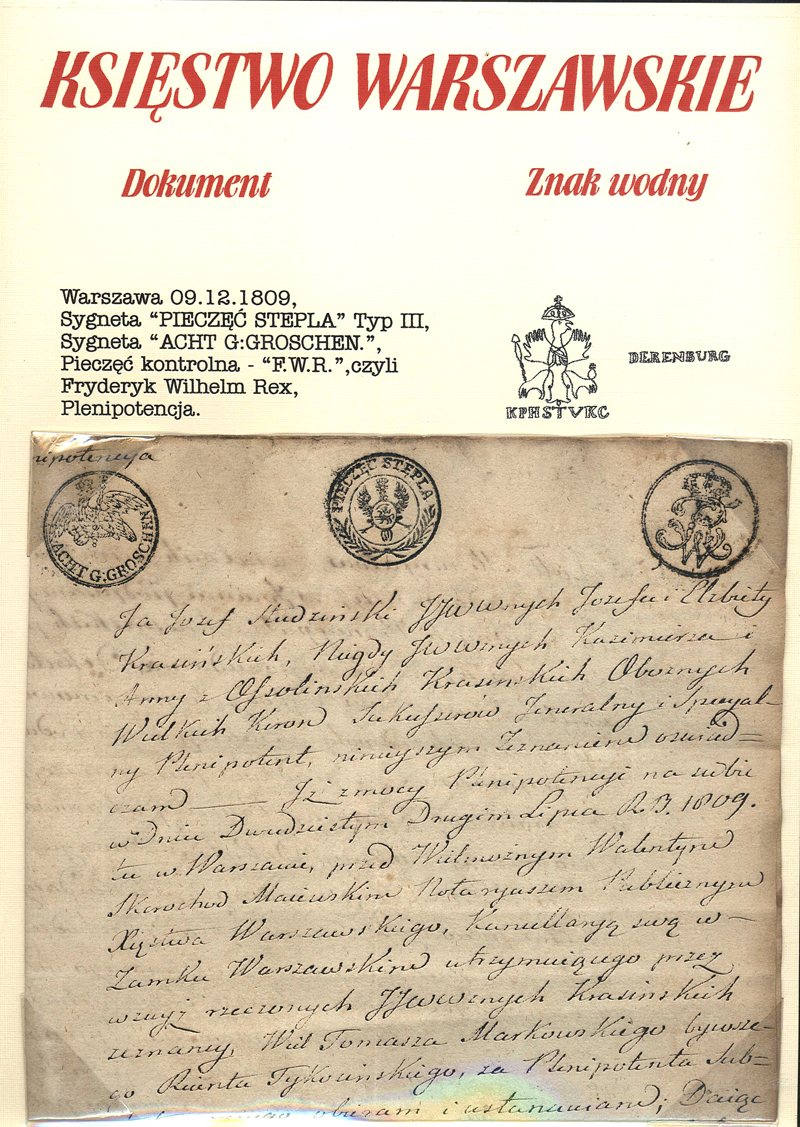 KSIĘSTWO WARSZAWSKIE
Dokument
Znak wodny
Warszawa 09.12.1809,
Sygneta “PIECZĘĆ STEPLA” Typ III,
Sygneta “ACHT G:GROSCHEN.”,
Pieczęć kontrolna - “F.W.R.”,czyli
Fryderyk Wilhelm Rex,
Plenipotencja.
DERENBURG
KPHSTVKC
nipotencya
ACHT G:GROSCHEN
PIECZĘĆ STEPLA
Ja Jozef Studzinski JJWWnych Jozefa i Elzbiety
Krasińskich, Niegdy JWWznych Kazimierza i
Anny z Ossolinskich Krasinskich Oboznych
Wielkich Koron Sukcessorów Jeneralny i Specyal-
ny Plenipotent, ninieyszym Zeznaniem oswiad-
czam — Jż z mocy Plenipotencyi na siebie
w Dniu Dwudziestym Drugim Lipca R.B. 1809.
tu w Warszawie, przed Wielmożnym Walentym
Skorochod Maiewskim Notaryuszem Publicznym
Xięstwa Warszawskiego, Kancellaryą swą w-
Zamku Warszawskim utrzymuiącego przez
wzwyż rzeczonych JJWWznych Krasinskich
zeznaney, Wel Tomasza Markowskiego bywsze-
go Rienta Tykocinskiego, za Plenipotenta Sub-
obieram i ustanawiam; Daiąc